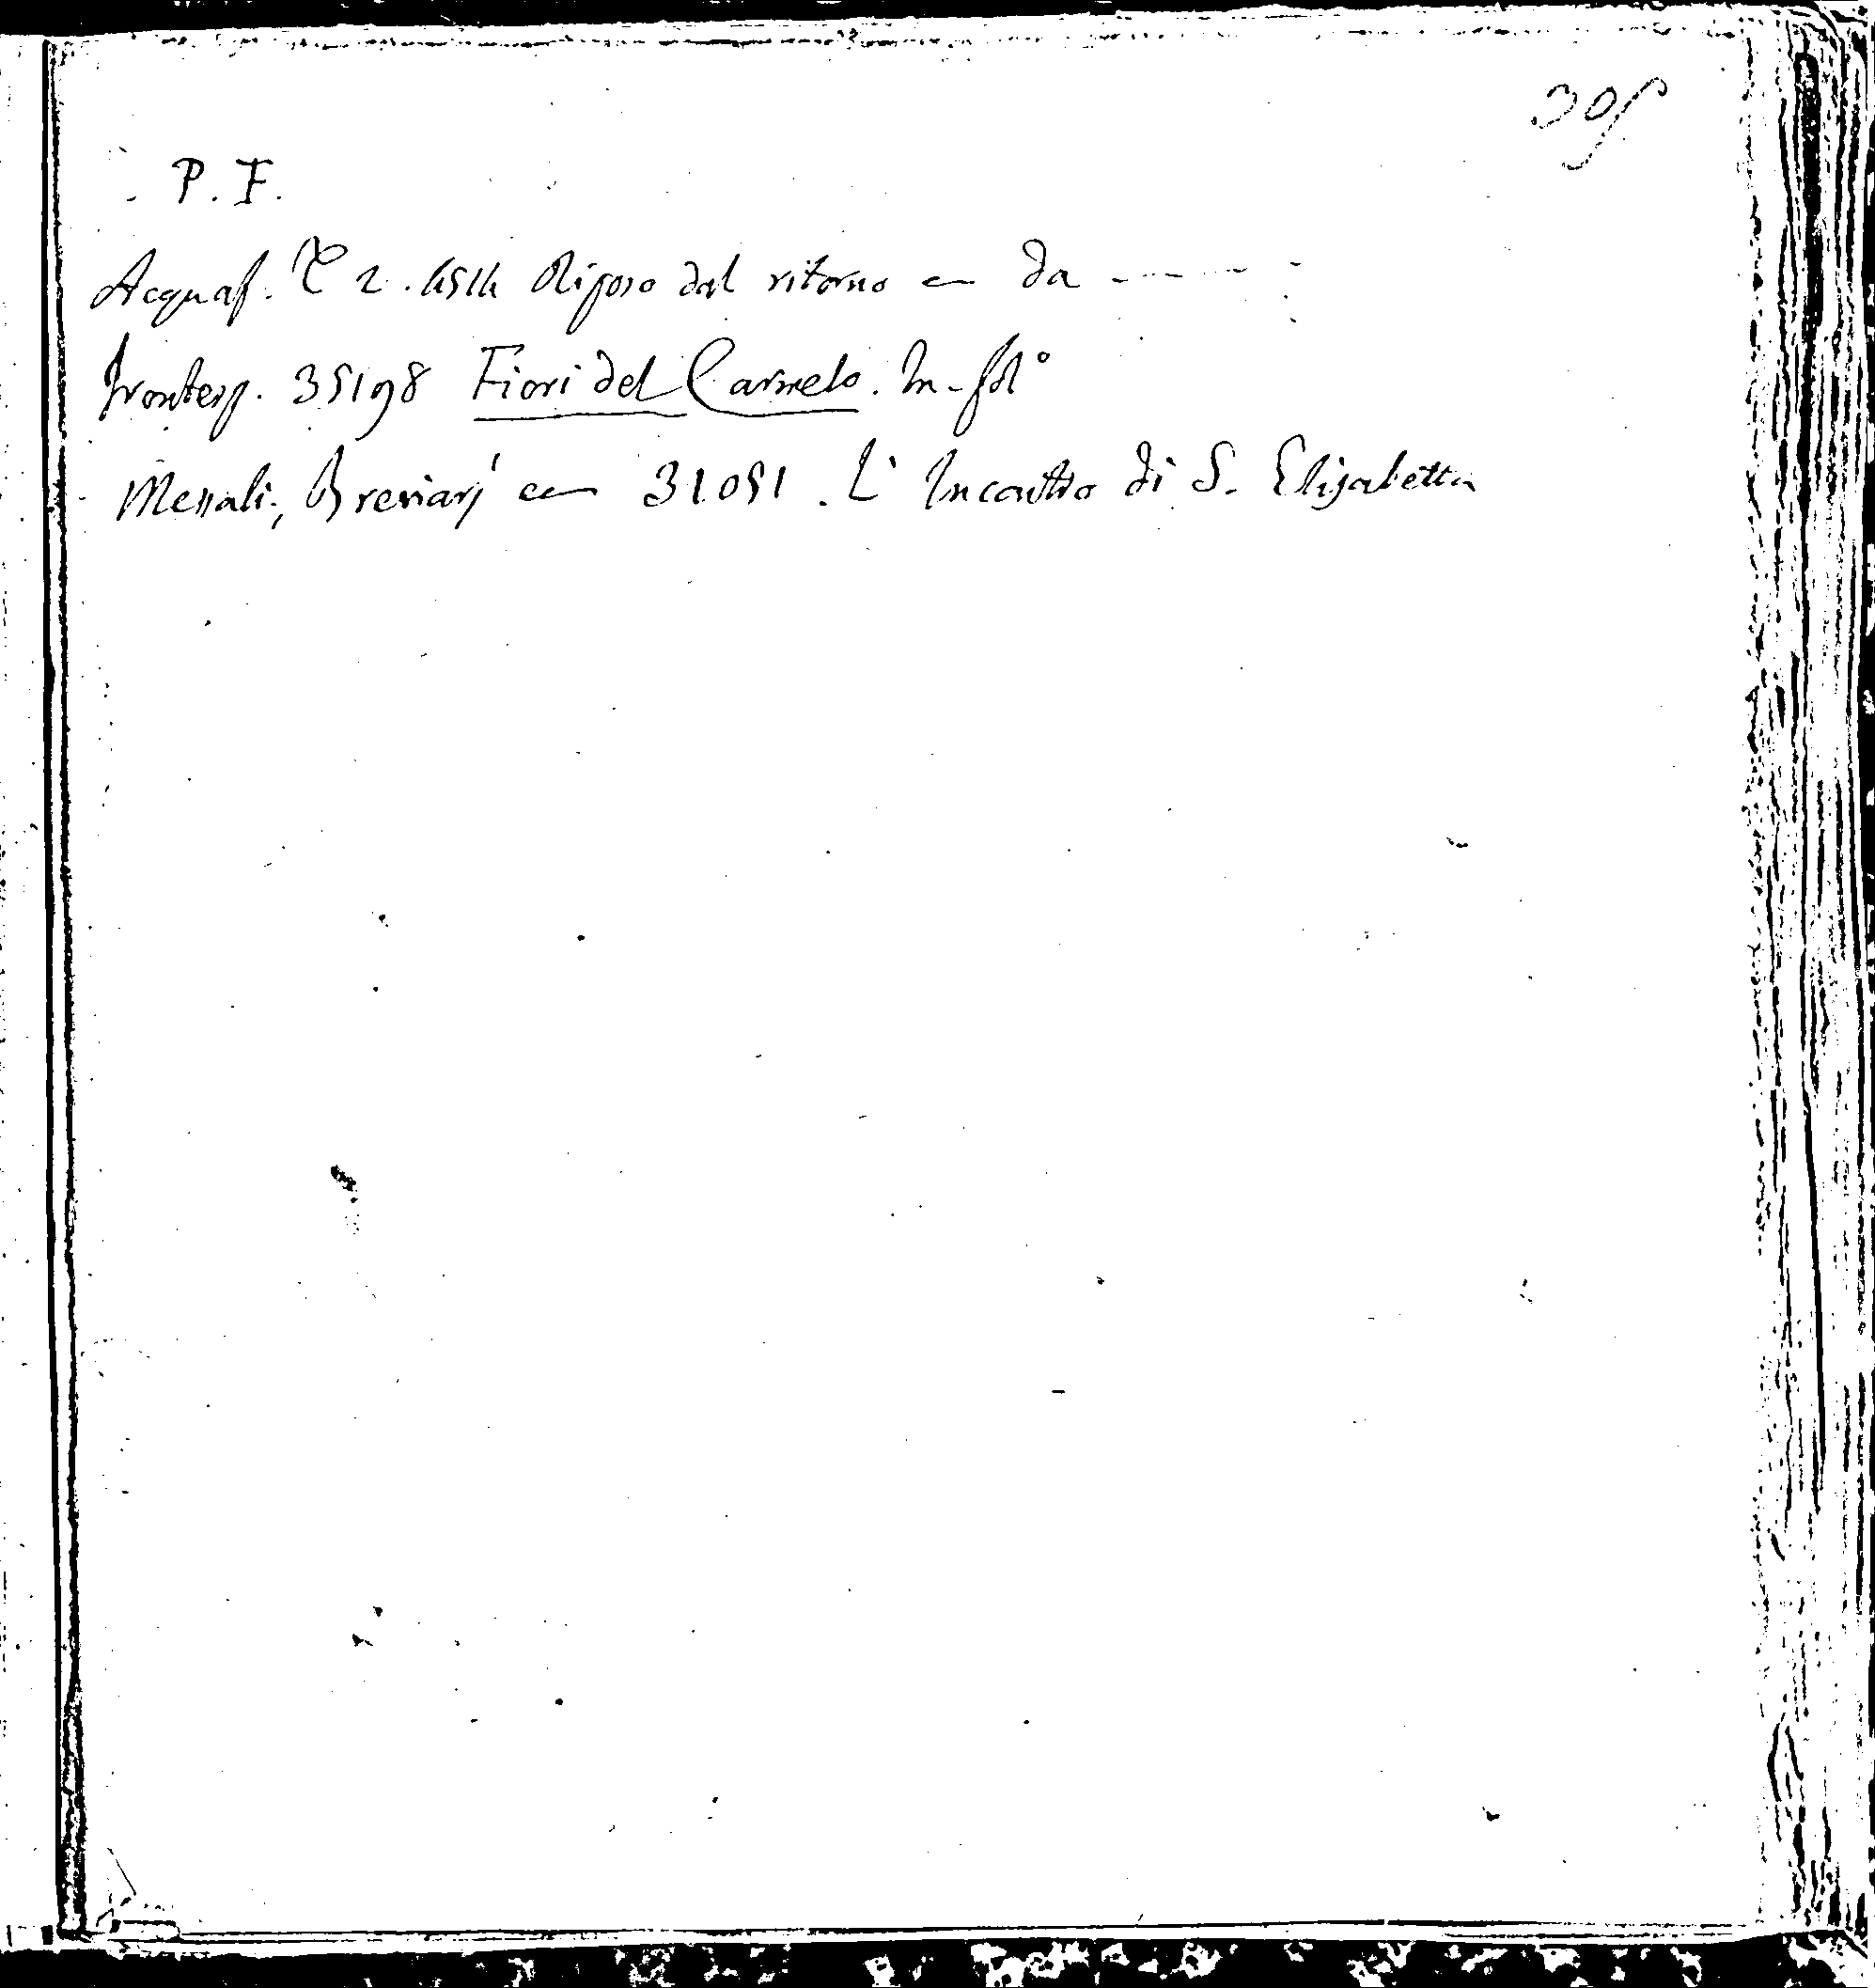 305
P. F.
Acquaf. T 2. 4514 Riposo dal ritorno da
frontesp. 35198 Fiori del Carmelo. In-fol°
Messali, Breviarj 31051. L'Incontro di S. Elisabetta